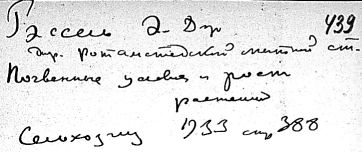 Рэссель Э. Джр 439
дир. Ротамстедской опытной ст.
Почвенные условия и рост
растений
Сельхозгиз 1933 стр 388